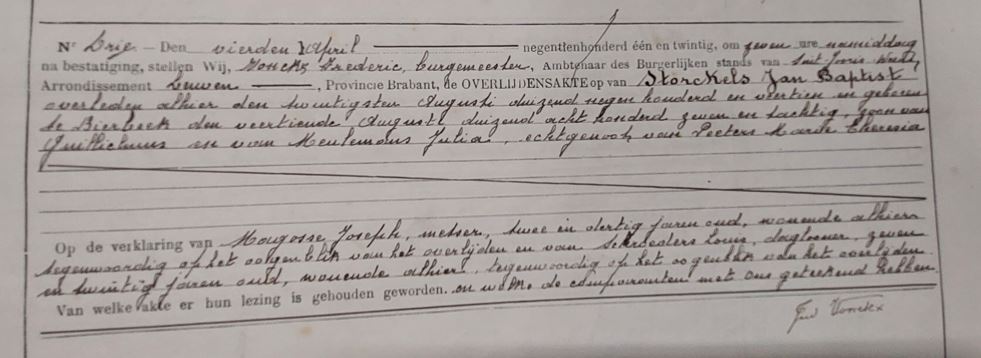 Nr Drie. — Den vierden April negentienhonderd één en twintig, om zeven ure namiddag
na bestatiging, stellen Wij, Vonckx Frederic, burgemeester, Ambtenaar des Burgerlijken stands van Sint Joris
Arrondissement Leuven, Provincie Brabant, de OVERLIJDENSAKTE op van Storckels Jan Baptist
overleden alhier den twintigsten Augusti duizend negen honderd en veertien en geboren
te Bierbeek den veertiende Augusti duizend acht honderd zeven en tachtig, zoon van
Guillielmus en van Meulemans Julia, echtgenoot van Peeters Maria Theresia
Op de verklaring van Joseph, metser, twee en dertig jaren oud, wonende alhier
tegenwoordig op het oogenblik van het overlijden en van Schroeders Louis, daglooner, zeven
en twintig jaren oud, wonende alhier, tegenwoordig op het oogenblik van het overlijden.
Van welke akte er hun lezing is gehouden geworden. en de comparanten met ons geteekend hebben
Vonckx